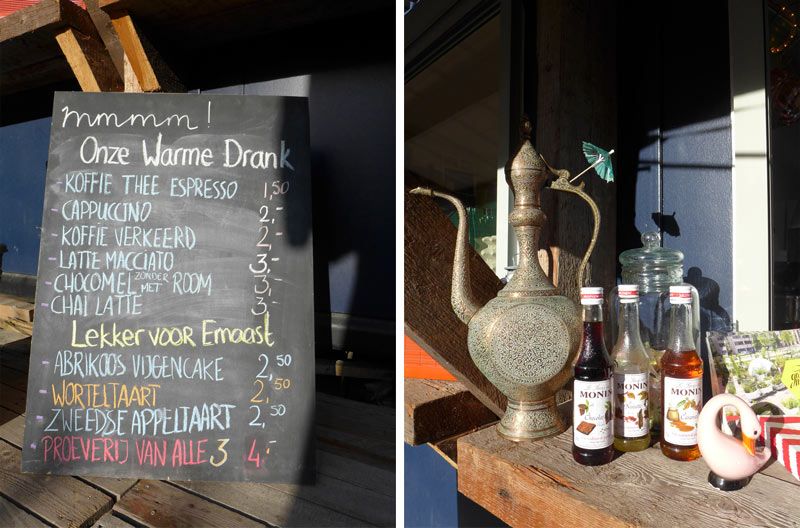 mmmm!
Onze Warme Drank
- KOFFIE THEE ESPRESSO 1,50
- CAPPUCCINO 2,-
- KOFFIE VERKEERD 2,-
- LATTE MACCIATO 3,-
- CHOCOMEL ZONDER MET ROOM 3,-
- CHAI LATTE 3,-
Lekker voor Ernaast
- ABRIKOOS VIJGENCAKE 2,50
- WORTELTAART 2,50
- ZWEEDSE APPELTAART 2,50
- PROEVERIJ VAN ALLE 3 4,-
MONIN
MONIN
MONIN